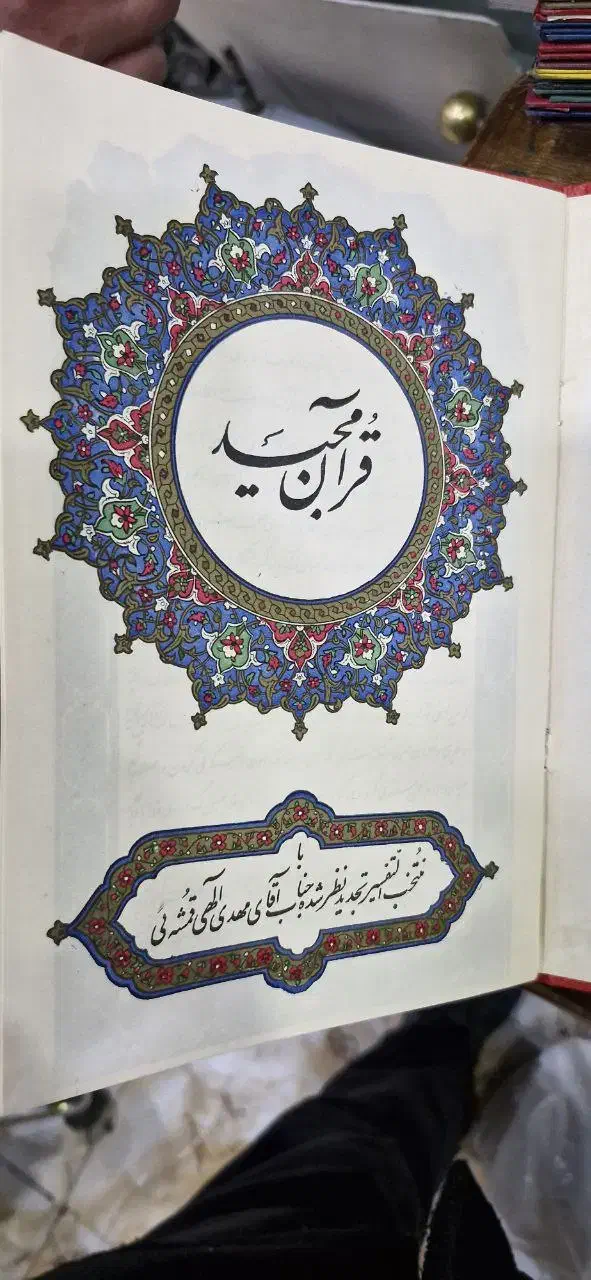 قرآن مجید
با
منتخب التفسیر تجدید نظر شده جناب آقای مهدی الهی قمشه ئی